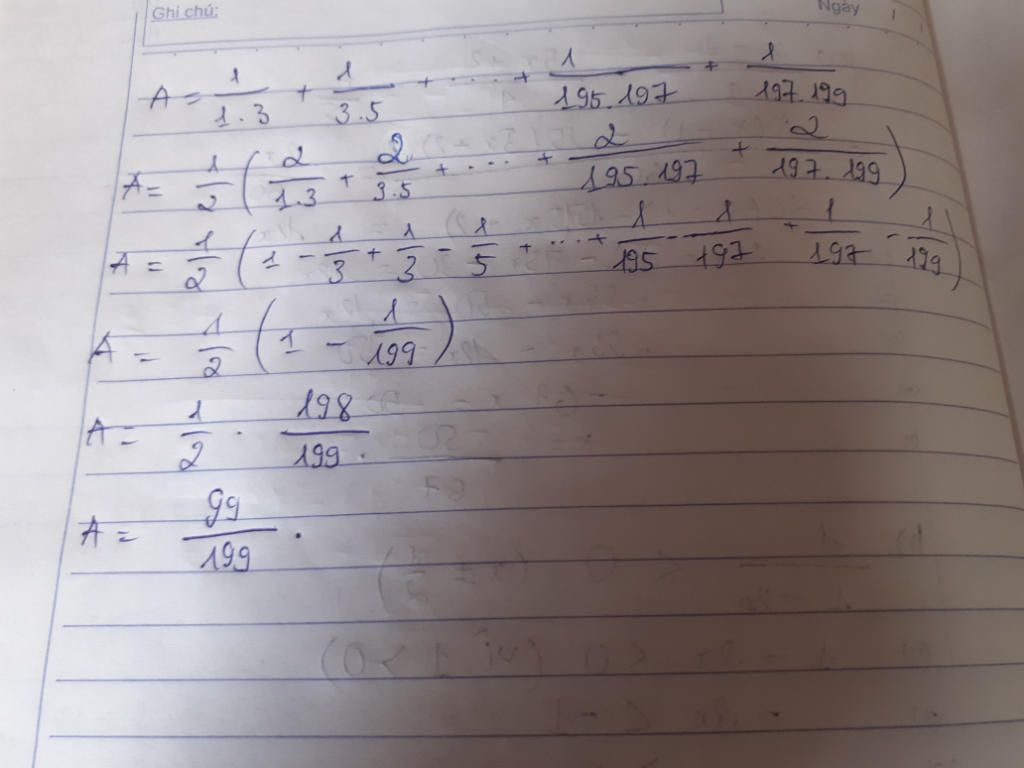 Ghi chú:
Ngày
A = 1/1.3 + 1/3.5 + .... + 1/195.197 + 1/197.199
A = 1/2 ( 2/1.3 + 2/3.5 + .... + 2/195.197 + 2/197.199 )
A = 1/2 ( 1 - 1/3 + 1/3 - 1/5 + ... + 1/195 - 1/197 + 1/197 - 1/199 )
A = 1/2 ( 1 - 1/199 )
A = 1/2 . 198/199 .
A = 99/199 .